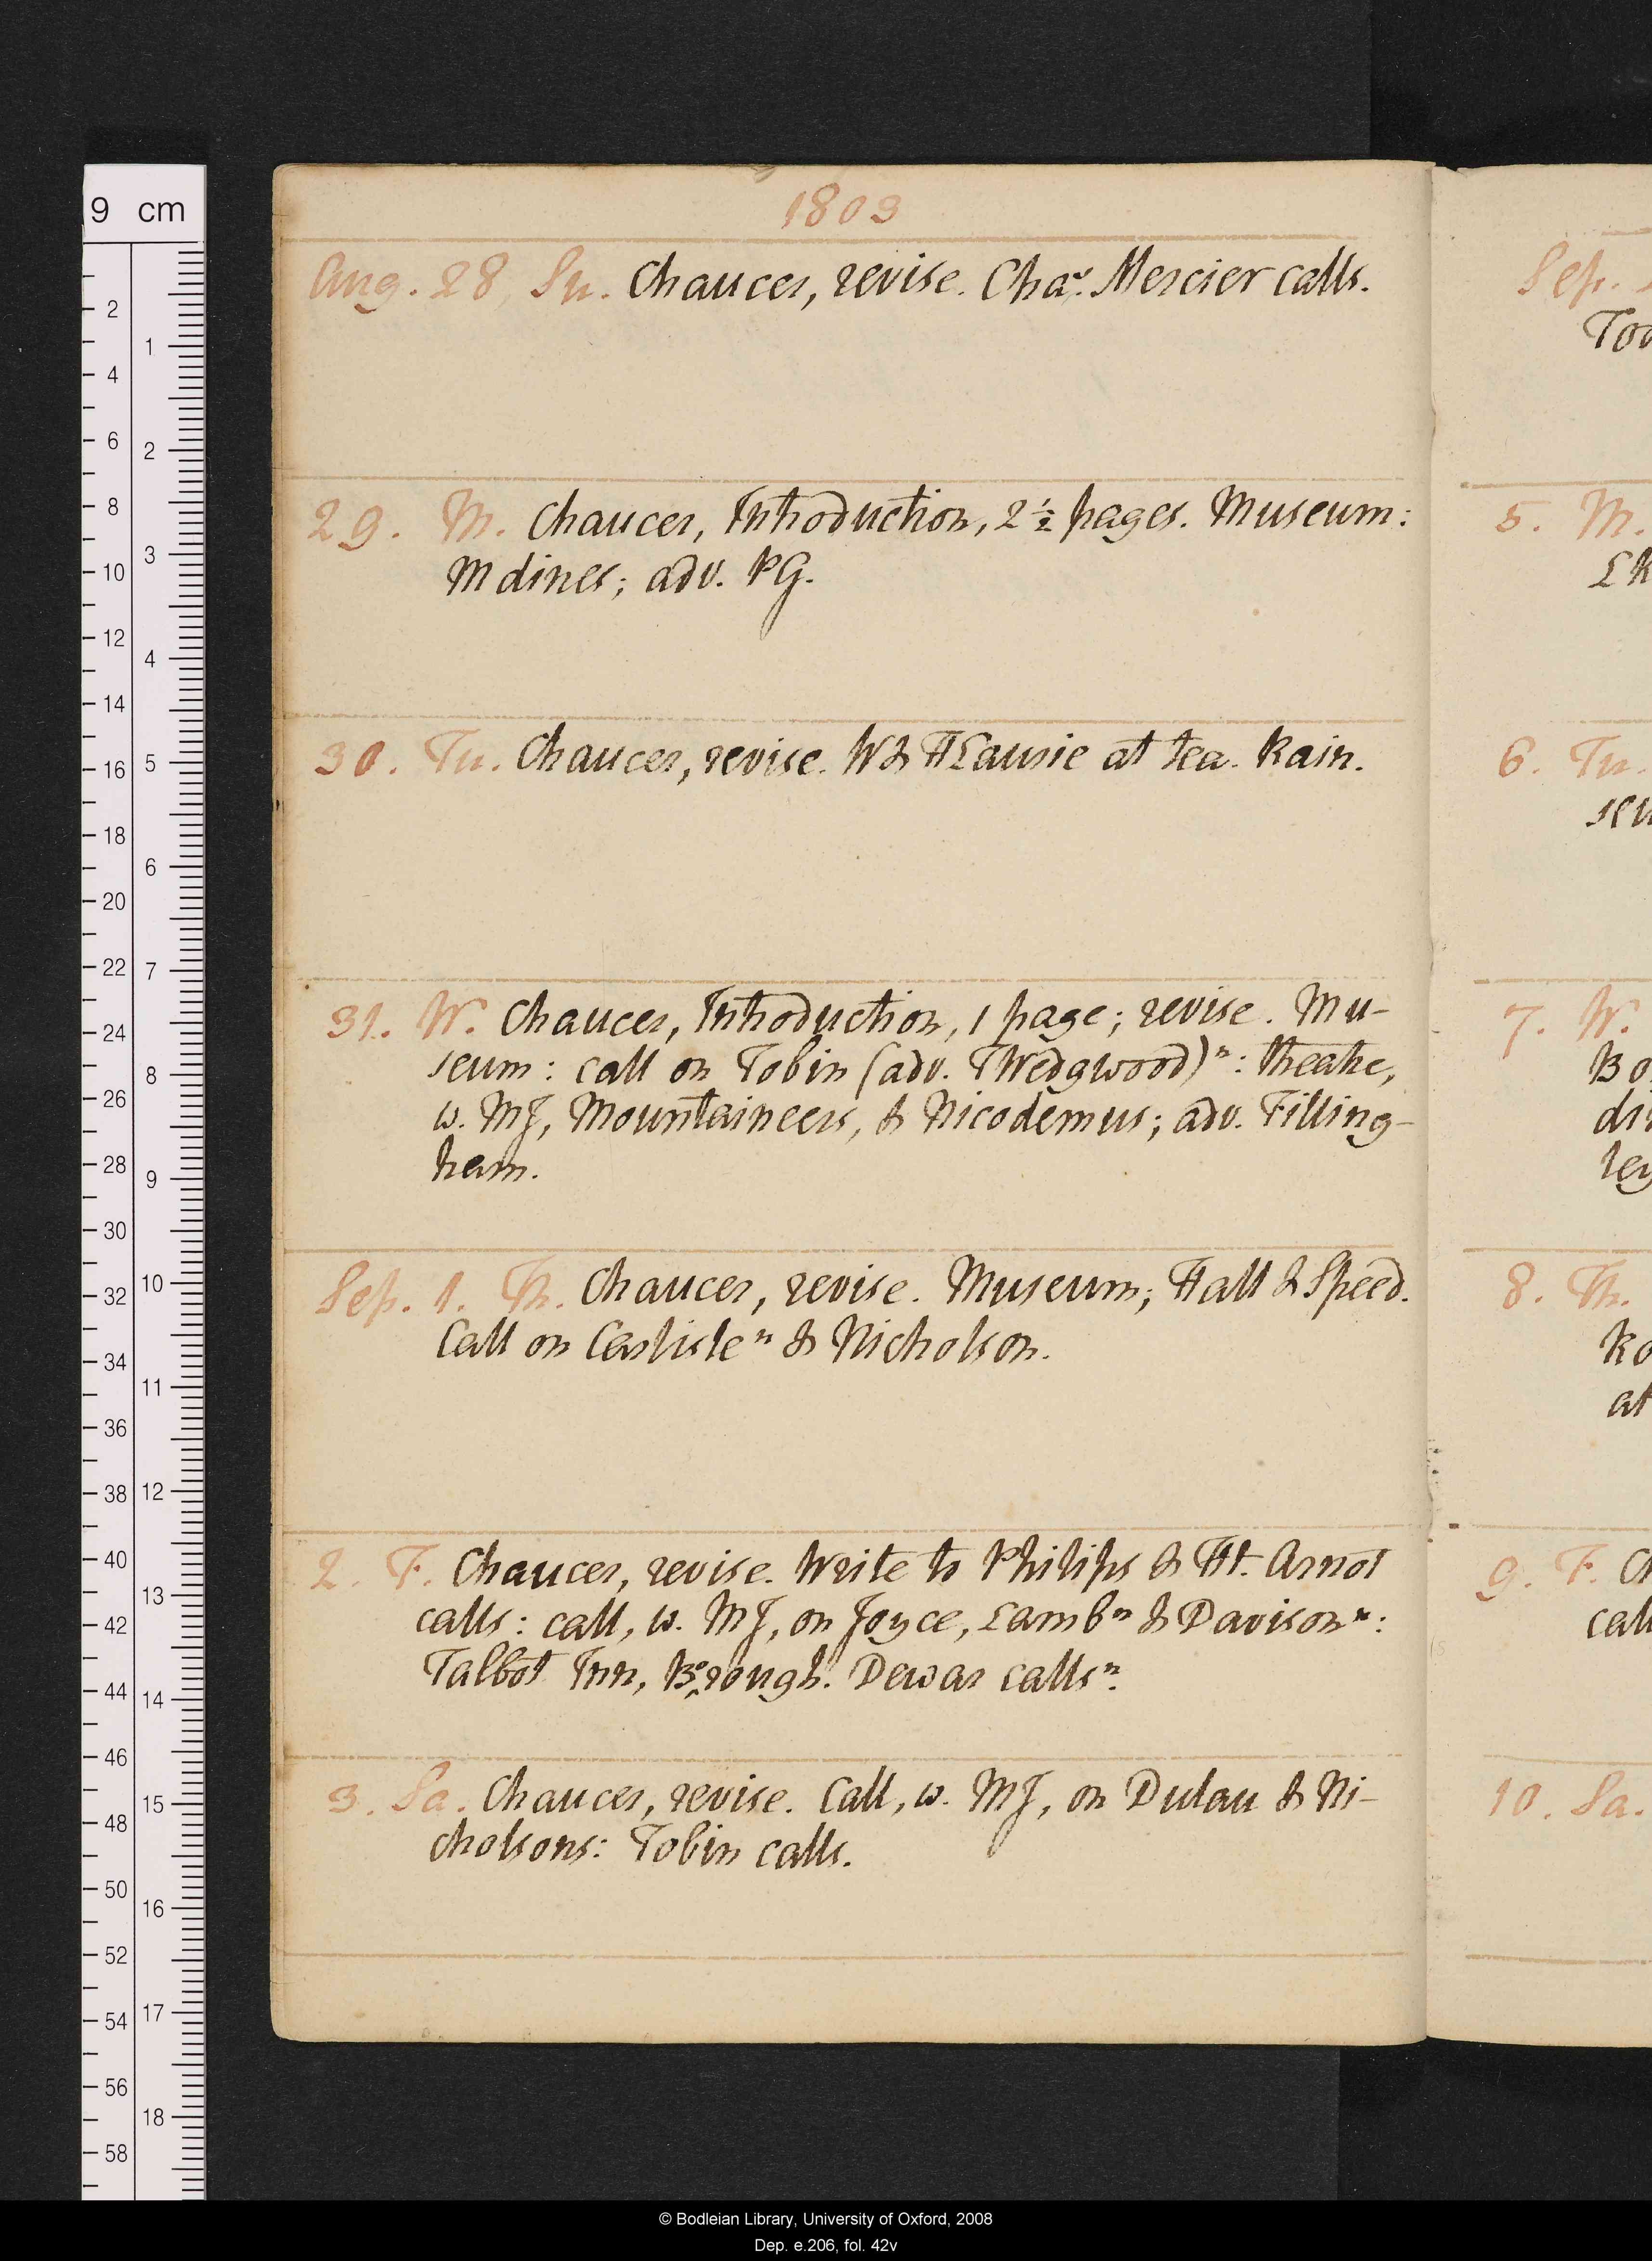 1803
Aug. 28, Su. Chaucer, revise. Char. Mercier calls.
29. M. Chaucer, Introduction, 2 ½ pages. Museum:
M dines; adv. PG.
30. Tu. Chaucer, revise. W & H Laurie at tea. Rain.
31. W. Chaucer, Introduction, 1 page; revise. Mu-
seum: call on Tobin (adv. T Wedgwood)n: theatre,
w. MJ, Mountaineers, & Nicodemus; adv. Filling-
ham.
Sep. 1. Th. Chaucer, revise. Museum; Hall & Speed.
Call on Carlisle n & Nicholson.
2. F. Chaucer, revise. Write to Philips & Ht. Arnot
calls: call, w. MJ, on Joyce, Lamb n & Davison n:
Talbot Inn, Borough. Dewar calls n.
3. Sa. Chaucer, revise. Call, w. MJ, on Dulau & Ni-
cholsons: Tobin calls.
Sep.
5. M.
6. Tu.
7. W.
8. Th.
at
9. F.
call
10. Sa.
9 cm
2
4
6
8
10
12
14
16
18
20
22
24
26
28
30
32
34
36
38
40
42
44
46
48
50
52
54
56
58
1
2
3
4
5
6
7
8
9
10
11
12
13
14
15
16
17
18
© Bodleian Library, University of Oxford, 2008
Dep. e.206, fol. 42v